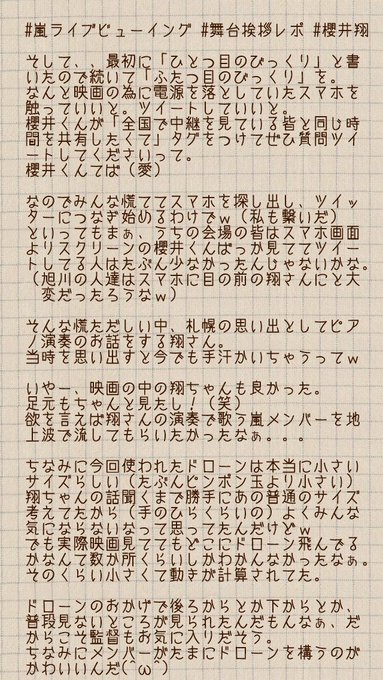 #嵐ライブビューイング #舞台挨拶レポ #櫻井翔
そして、、最初に「ひとつ目のびっくり」と書
いたので続いて「ふたつ目のびっくり」を。
なんと映画の為に電源を落としていたスマホを
触っていいと。ツイートしていいと。
櫻井くんが「全国で中継を見ている皆と同じ時
間を共有したくて」タグをつけてぜひ質問ツイ
ートしてくださいって。
櫻井くんてば（愛）
なのでみんな慌ててスマホを探し出し、ツイッ
ターにつなぎ始めるわけでｗ（私も繋いだ）
といってもまぁ、うちの会場の皆はスマホ画面
よりスクリーンの櫻井くんばっか見ててツイー
トしてる人はたぶん少なかったんじゃないかな。
（旭川の人達はスマホに目の前の翔さんにと大
変だったろうなｗ）
そんな慌ただしい中、札幌の思い出としてピア
ノ演奏のお話をする翔さん。
当時を思い出すと今でも手汗かいちゃうってｗ
いやー、映画の中の翔ちゃんも良かった。
足元もちゃんと見たし！（笑）
欲を言えば翔さんの演奏で歌う嵐メンバーを地
上波で流してもらいたかったなぁ。。。
ちなみに今回使われたドローンは本当に小さい
サイズらしい（たぶんピンポン玉より小さい）
翔ちゃんの話聞くまで勝手にあの普通のサイズ
考えてたから（手のひらくらいの）よくみんな
気にならないなって思ってたんだけどｗ
でも実際映画見ててもどこにドローン飛んでる
かなんて数か所くらいしかわかんなかったなぁ。
そのくらい小さくて動きが計算されてた。
ドローンのおかげで後ろからとか下からとか、
普段見ないところが見られたんだもんなぁ、だ
からこそ監督もお気に入りだそう。
ちなみにメンバーがたまにドローンを構うのが
かわいいんだ(^ω^)